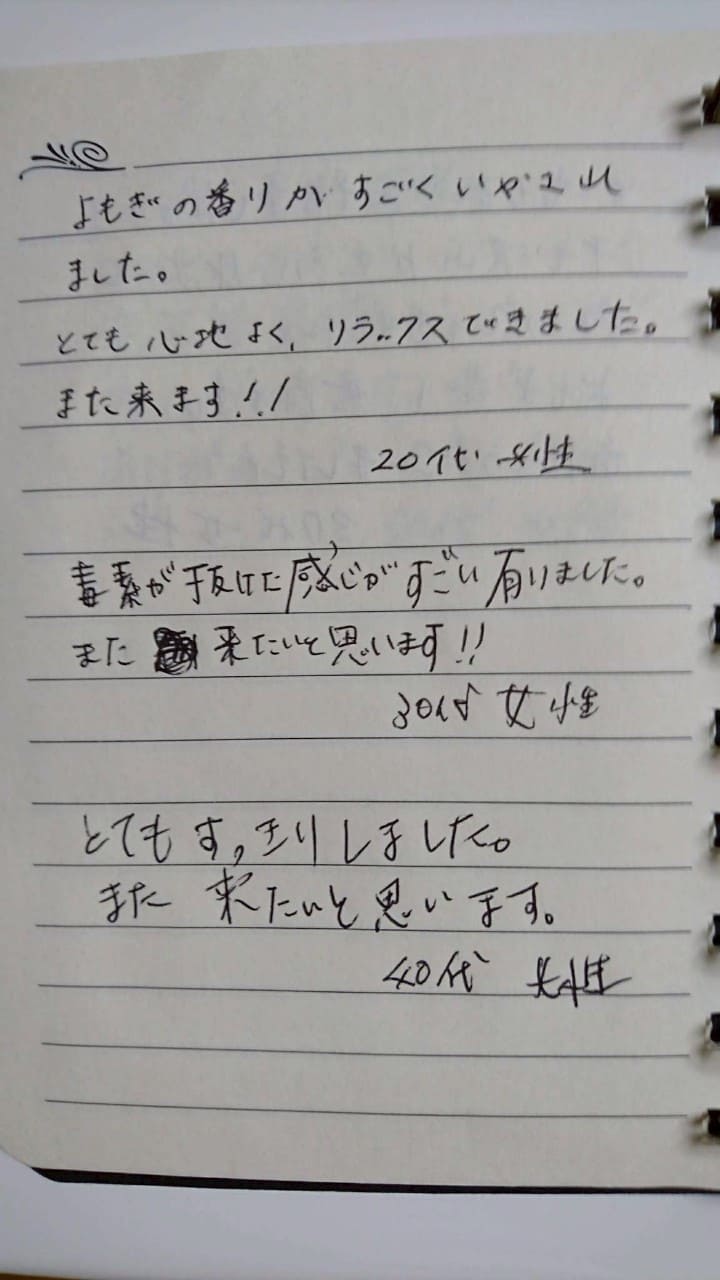 よもぎの香りがすごくいやされ
ました。
とても心地よく、リラックスできました。
また来ます!!
20代 女性
毒素が抜けた感じがすごい有りました。
また 来たいと思います!!
30代 女性
とてもすっきりしました。
また 来たいと思います。
40代 女性